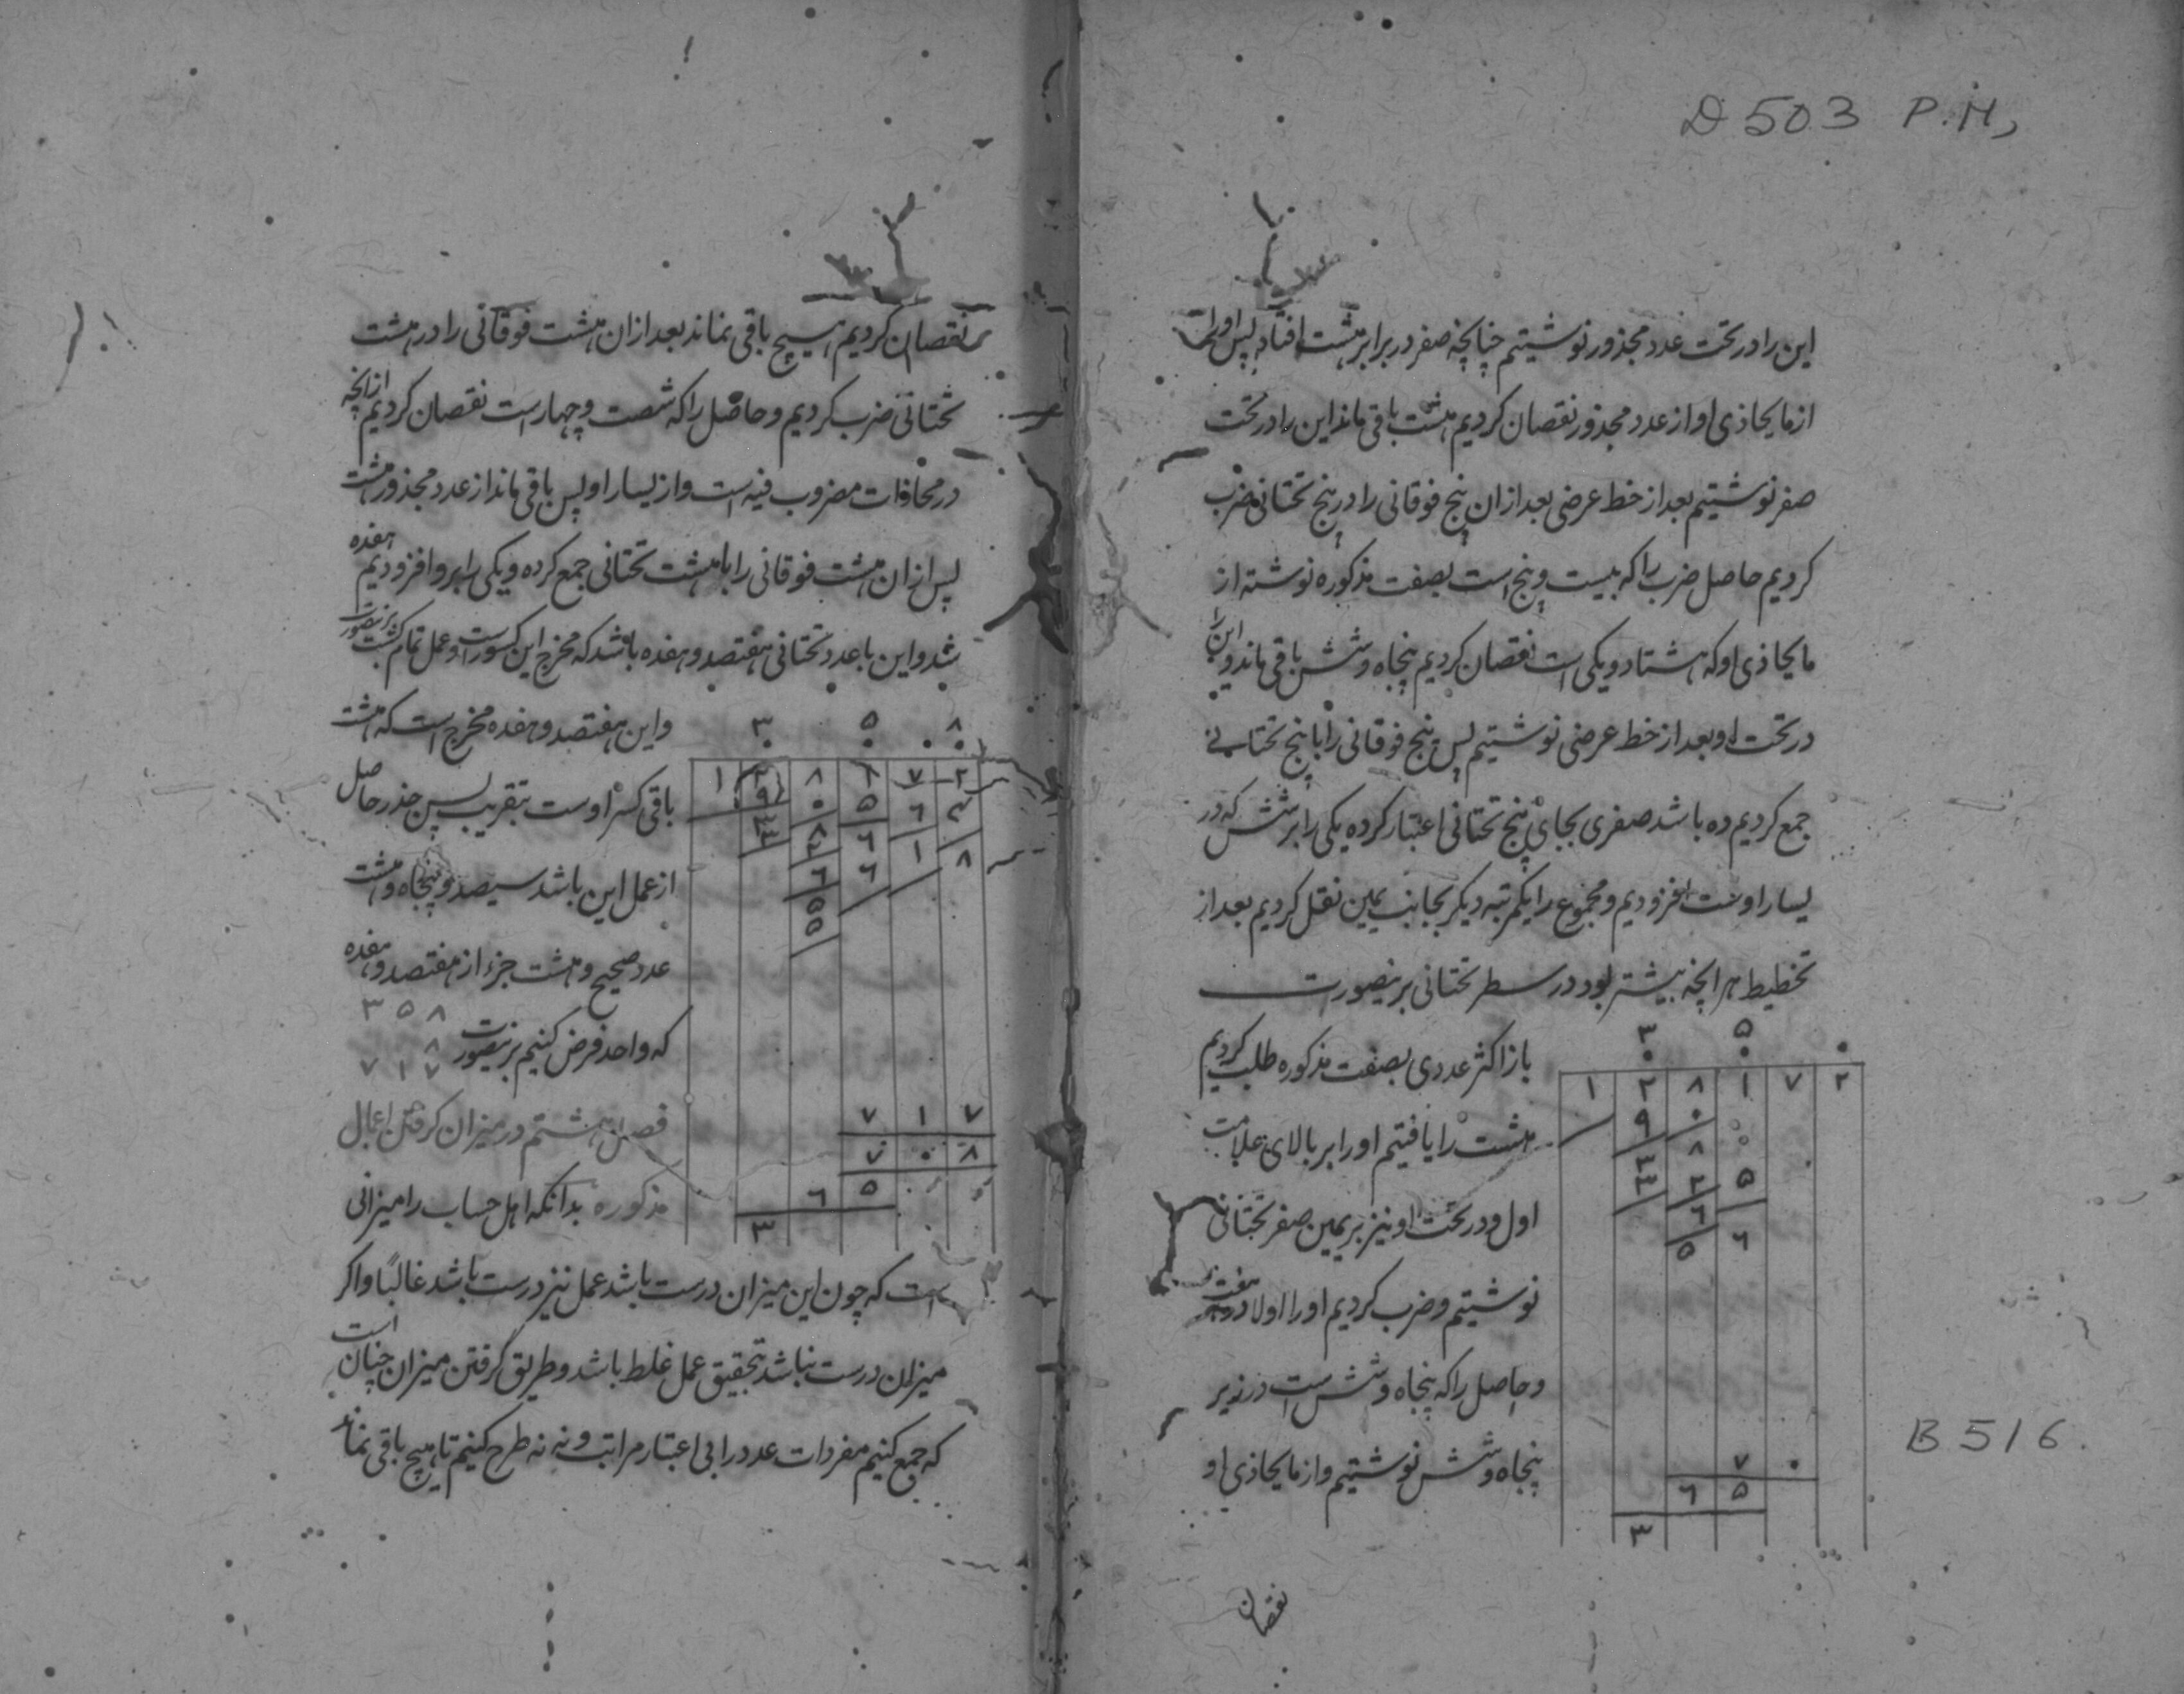 D 503 P.H,
این را در تحت عدد مجذور نوشتیم چنانچه صفر در برابر هشت افتاد پس او را
از ما یحاذی او از عدد مجذور نقصان کردیم هشت باقی ماند این را در تحت
صفر نوشتیم بعد از خط عرضی بعد ازان پنج فوقانی را در پنج تحتانی ضرب
کردیم حاصل ضرب را که بیست و پنج است بصفت مذکوره نوشته از
ما یحاذی او که هشتاد و یکی است نقصان کردیم پنجاه و شش باقی ماند و این را
در تحت او بعد از خط عرضی نوشتیم پس پنج فوقانی را با پنج تحتانی
جمع کردیم ده باشد صفری بجای پنج تحتانی اعتبار کرده یکی را بر شش که در
یسار اوست افزودیم و مجموع را یکمرتبه دیکر بجانب یمین نقل کردیم بعد از
تخطیط هر انچه بیشتر بود در سطر تحتانی برینصورت
باز اکثر عددی بصفت مذکوره طلب کردیم
هشت را یافتیم او را بر بالای علامت
اول و در تحت او نیز بر یمین صفر تحتانی
نوشتیم و ضرب کردیم او را اولا در هفت
و حاصل را که پنجاه و شش است در زیر
پنجاه و شش نوشتیم و از ما یحاذی او
۳ ۵
۱ ۲ ۸ ۱ ۷ ۲
۹ ۰
۸
۳ ۲ ۵
۳ ۶
۵ ۶
۷ ۰
۶ ۵
۳
B 516.
نقصان
نقصان کردیم هیچ باقی نماند بعد ازان هشت فوقانی را در هشت
تحتانی ضرب کردیم و حاصل را که شصت و چهار است نقصان کردیم از انچه
در محاذات مضروب فیه است و از یسار او پس باقی ماند از عدد مجذور هشت
پس ازان هشت فوقانی را با هشت تحتانی جمع کرده و یکی را بر و افزودیم هفده
شد و این با عدد تحتانی هفتصد و هفده باشد که مخرج این کسور است و عمل تمام کشت برینصورت
و این هفتصد و هفده مخرج است که هشت
باقی کسر اوست بتقریب پس جذر حاصل
از عمل این باشد سیصد و پنجاه و هشت
عدد صحیح و هشت جزء از هفتصد و هفده
۳ ۵ ۸
که واحد فرض کنیم برینصورت ۸
۷ ۱ ۷
فصل هشتم در میزان کرفتن اعمال
مذکوره بدانکه اهل حساب را میزانی
۳ ۵ ۸
۱ ۲ ۸ ۱ ۷ ۲
۹ ۰ ۵ ۶ ۴
۳ ۸ ۶ ۱ ۸
۳ ۲ ۶
۶
۵
۵
۷ ۱ ۷
۷ ۰ ۸
۶ ۵
۳
است که چون این میزان درست باشد عمل نیز درست باشد غالبًا و اکر
میزان درست نباشد بتحقیق عمل غلط باشد و طریق کرفتن میزان چنان است
که جمع کنیم مفردات عدد را بی اعتبار مراتب و نه نه طرح کنیم تا هیچ باقی نماند